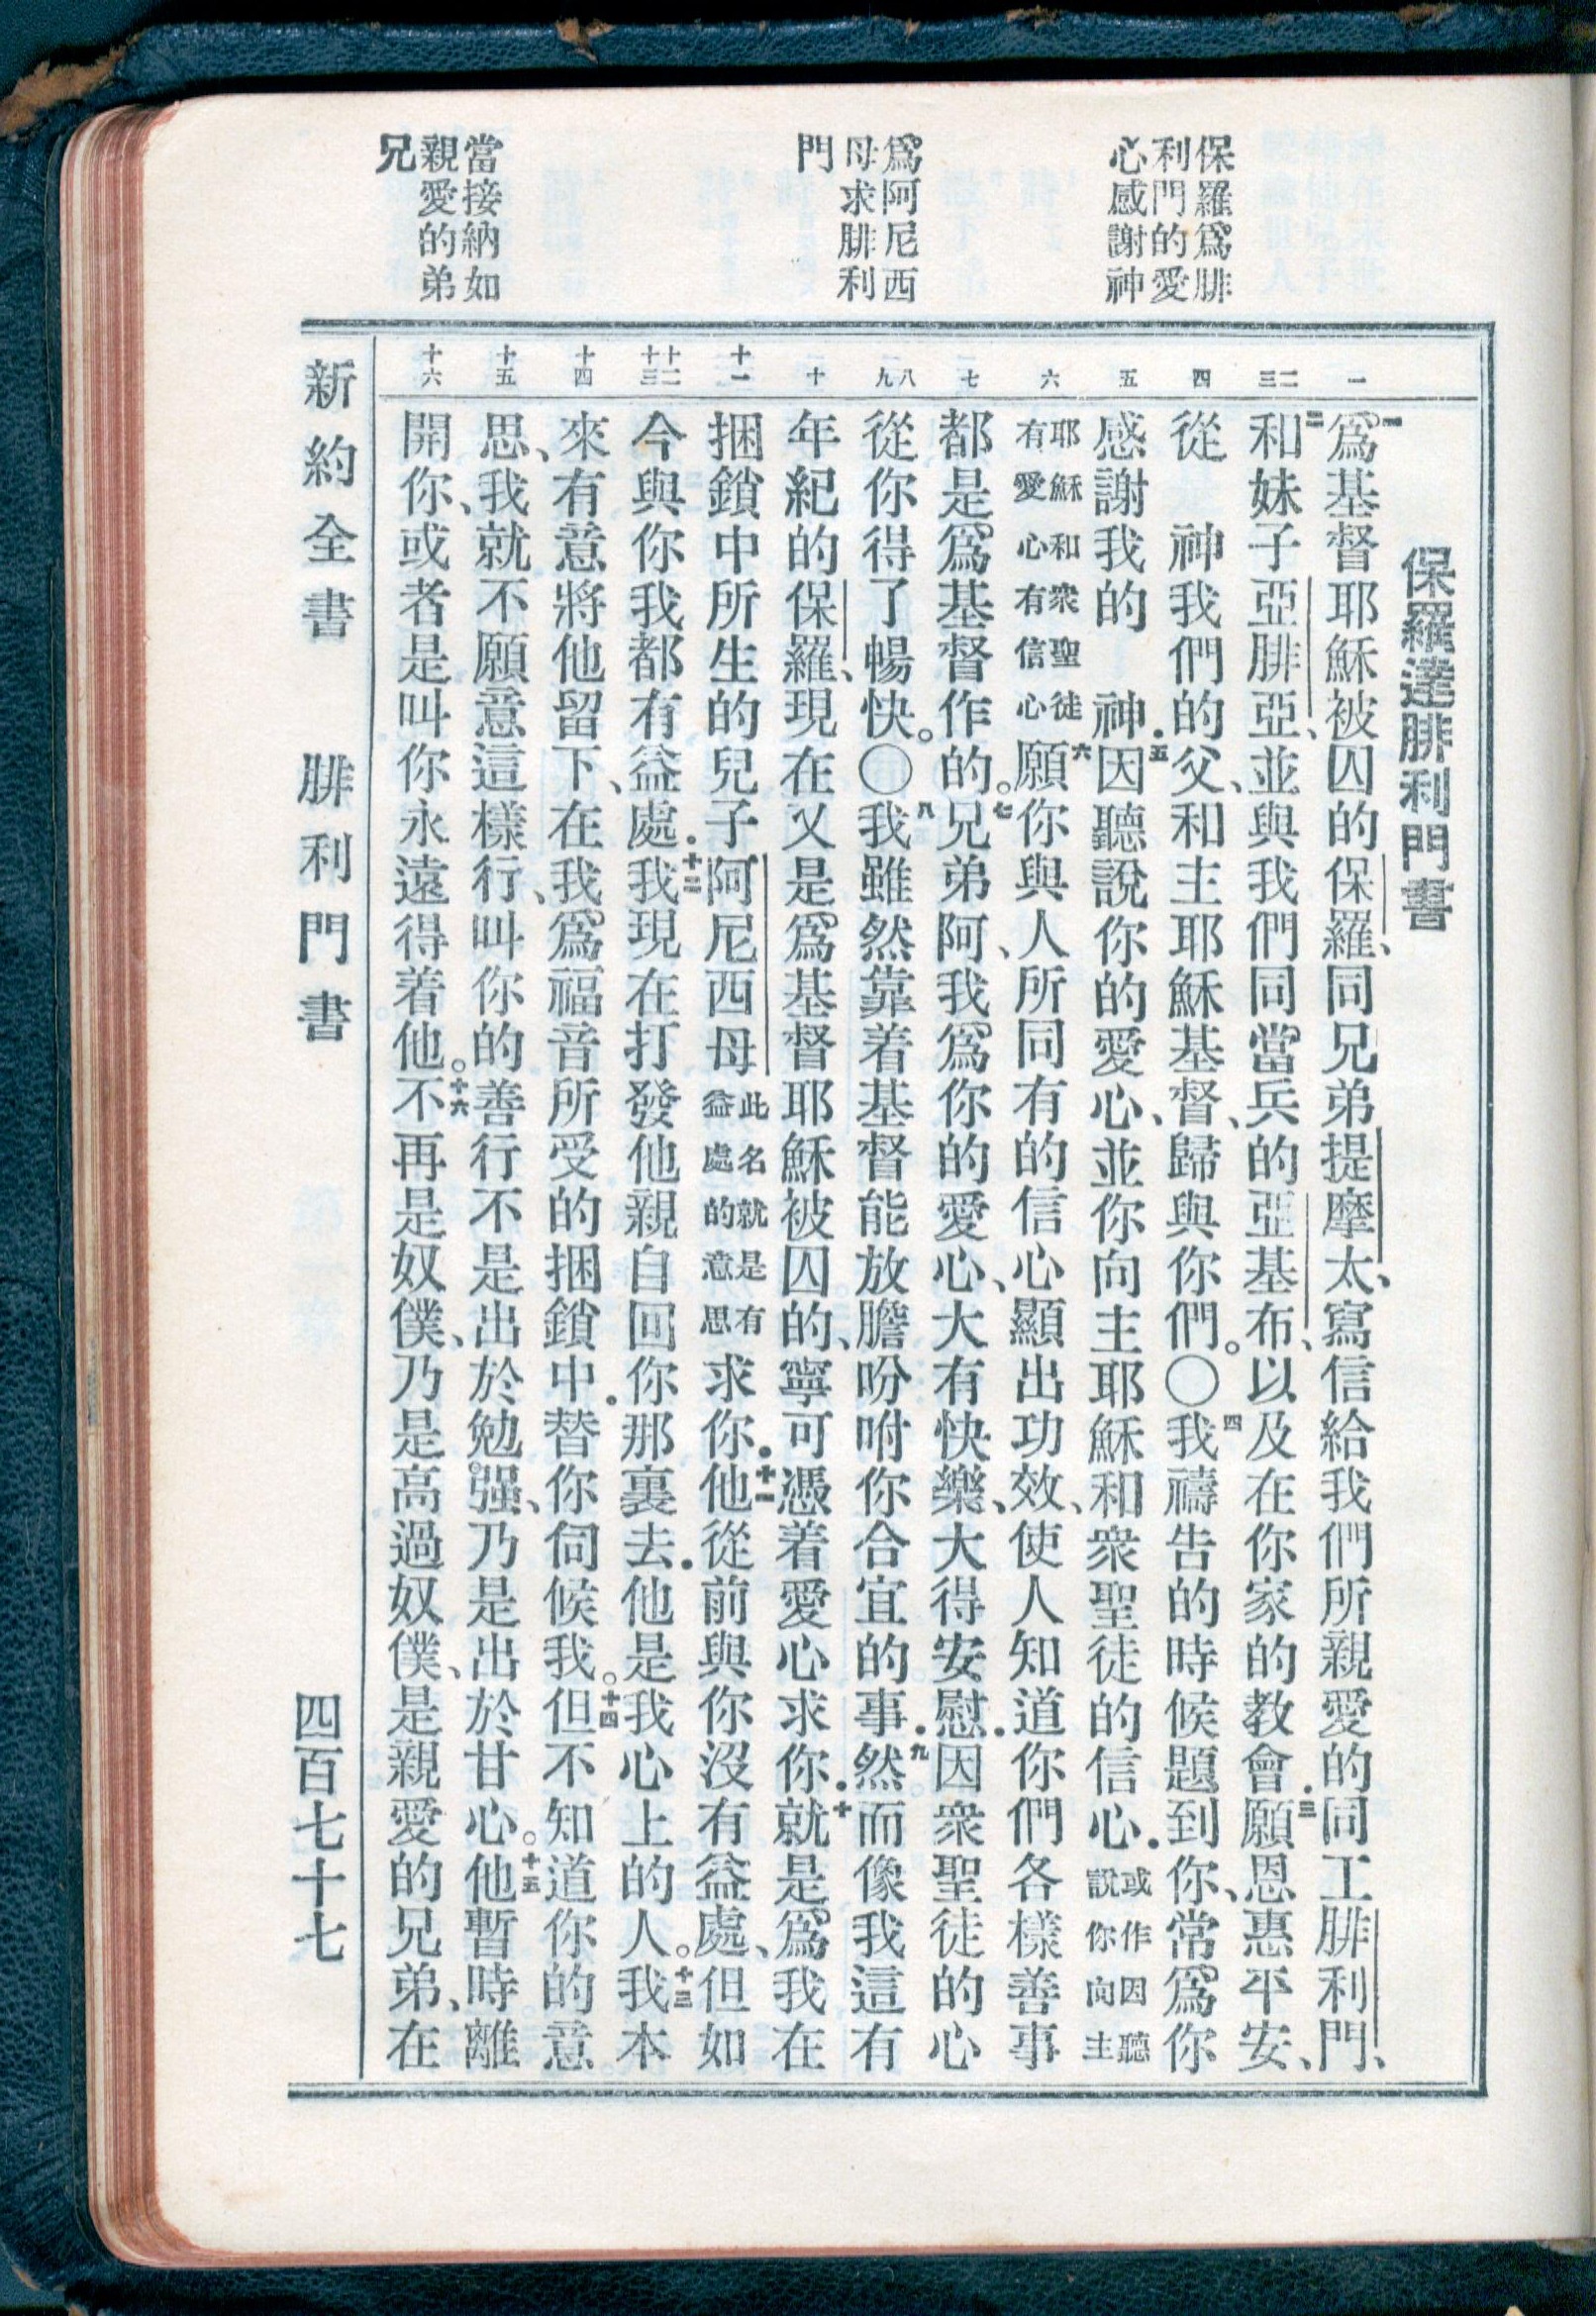 保羅爲腓
利門的愛
心感謝神
爲阿尼西
母求腓利
門
當接納如
親愛的弟
兄
一
二三
四
五
六
七
八九
十
十一
十二十三
十四
十五
十六
保羅達腓利門書
一爲基督耶穌被囚的保羅、同兄弟提摩太、寫信給我們所親愛的同工腓利門、
二和妹子亞腓亞、並與我們同當兵的亞基布、以及在你家的教會．三願恩惠平安、
從　神我們的父、和主耶穌基督、歸與你們。〇四我禱告的時候題到你、常爲你
感謝我的　神．五因聽說你的愛心、並你向主耶穌和衆聖徒的信心．或作因聽說你向主
耶穌和衆聖徒有愛心有信心六願你與人所同有的信心顯出功效、使人知道你們各樣善事
都是爲基督作的。七兄弟阿、我爲你的愛心、大有快樂、大得安慰．因衆聖徒的心
從你得了暢快。〇八我雖然靠着基督能放膽吩咐你合宜的事．九然而像我這有
年紀的保羅、現在又是爲基督耶穌被囚的、寧可憑着愛心求你．十就是爲我在
捆鎖中所生的兒子阿尼西母此名就是有益處的意思求你．十一他從前與你沒有益處、但如
今與你我都有益處．十二我現在打發他親自回你那裏去．他是我心上的人。十三我本
來有意將他留下、在我爲福音所受的捆鎖中．替你伺候我。十四但不知道你的意
思、我就不願意這樣行、叫你的善行不是出於勉强、乃是出於甘心。十五他暫時離
開你、或者是叫你永遠得着他。十六不再是奴僕、乃是高過奴僕、是親愛的兄弟、在
新約全書　腓利門書　四百七十七